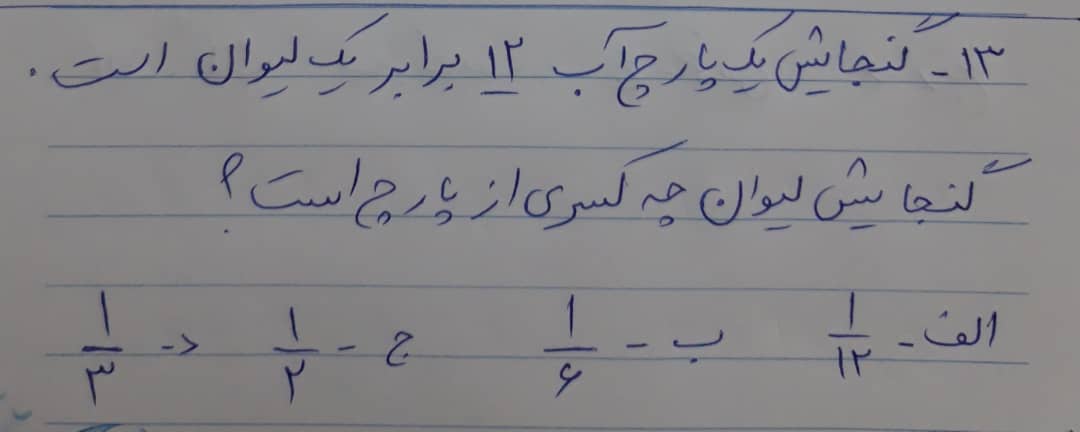 ۱۳- گنجایش یک پارچ آب ۱۲ برابر یک لیوان است.
گنجایش لیوان چه کسری از پارچ است؟
الف- ۱/۱۲ ب- ۱/۶ ج- ۱/۲ د- ۱/۳